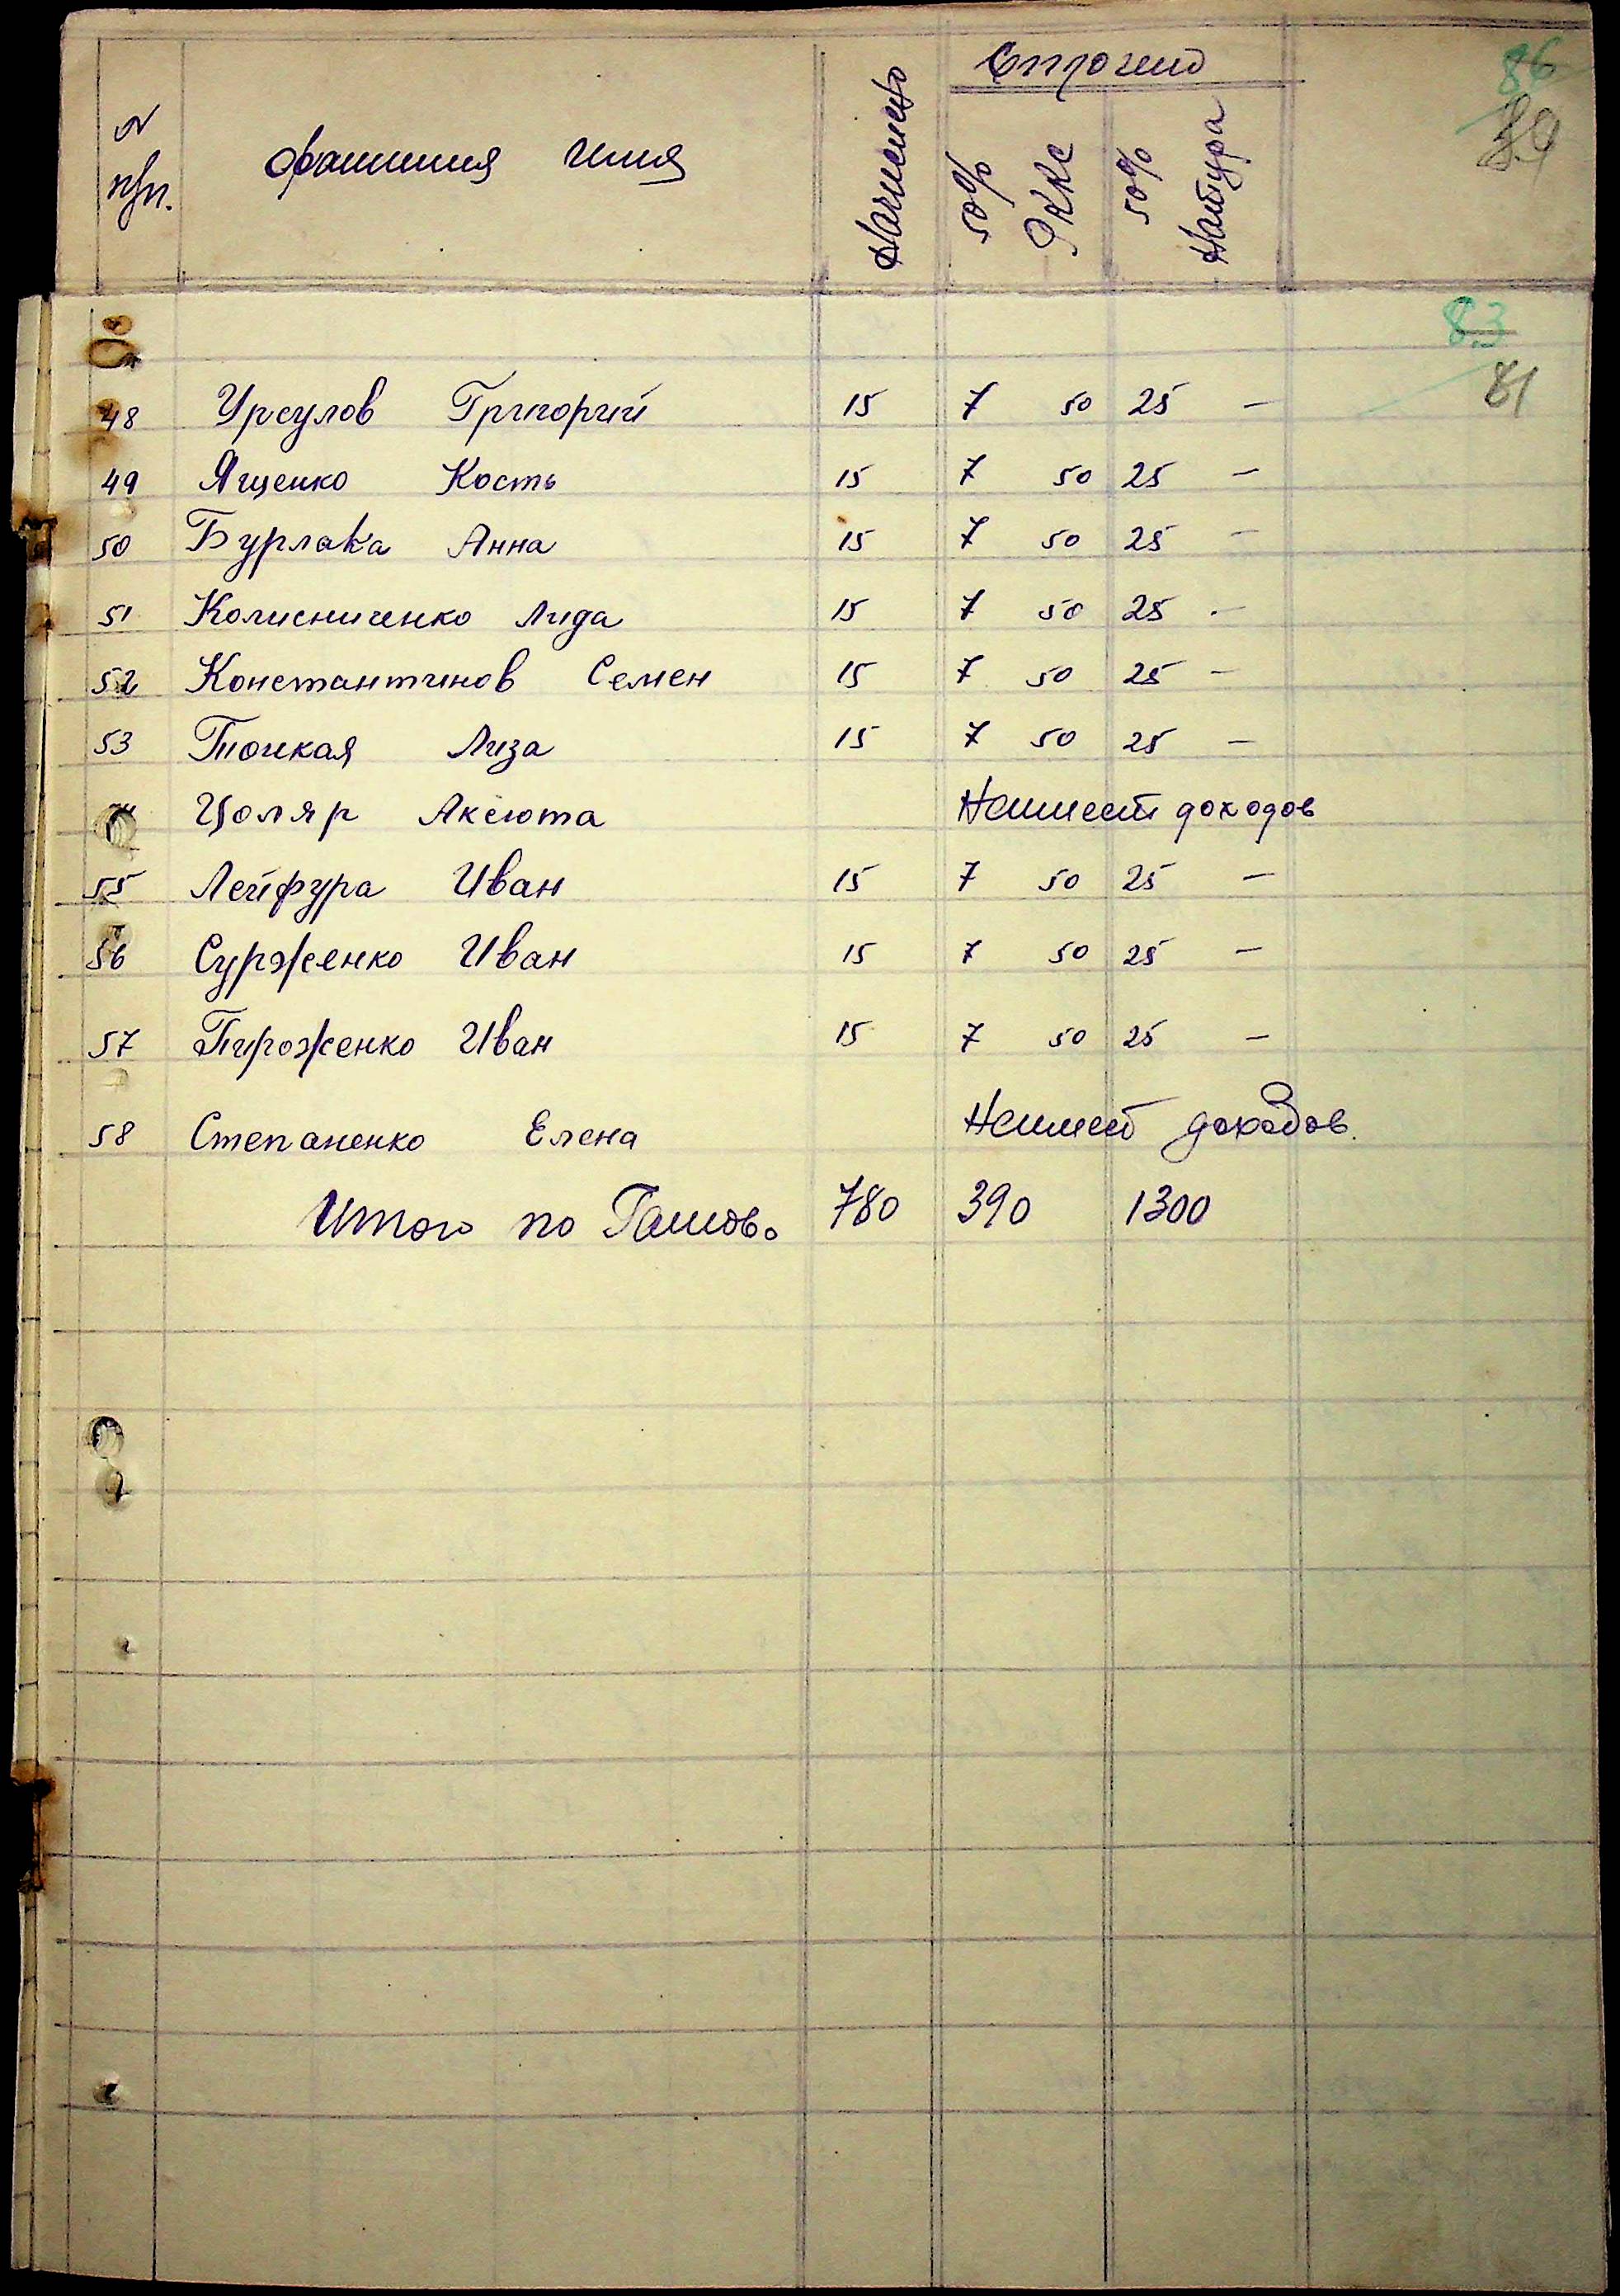 N п/п. фамилия имя Начислено Оплочено
50% РККС 50% Натура
86
83
81
48 Урсулов Григорий 15 7 50 25 —
49 Ященко Кость 15 7 50 25 —
50 Бурлака Анна 15 7 50 25 —
51 Колисниченко Лида 15 7 50 25 —
52 Константинов Семен 15 7 50 25 —
53 Тонкая Лиза 15 7 50 25 —
Цоляр Аксюта Неимеет доходов
55 Лейфура Иван 15 7 50 25 —
56 Сурженко Иван 15 7 50 25 —
57 Пироженко Иван 15 7 50 25 —
58 Степаненко Елена Неимеет доходов.
Итого по 780 390 1300